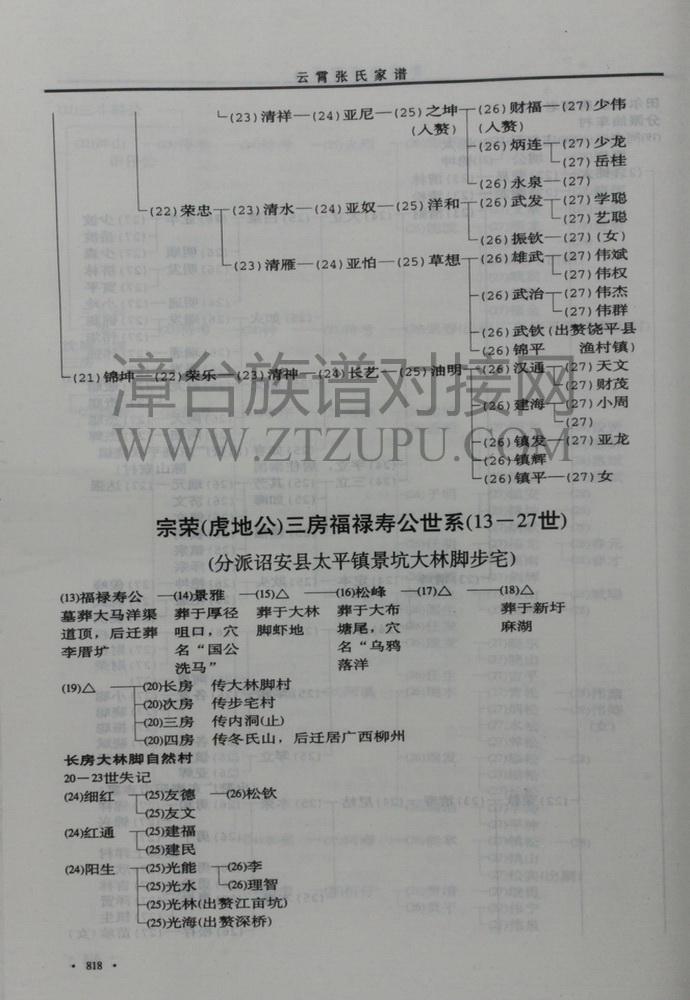 云霄张氏家谱
(23)清祥—(24)亚尼—(25)之坤—(26)财福—(27)少伟
(入赘) (入赘)
(26)炳连—(27)少龙
(27)岳桂
(26)永泉—(27)
(22)荣忠—(23)清水—(24)亚奴—(25)洋和—(26)武发—(27)学聪
(27)艺聪
(26)振钦—(27)(女)
(23)清雁—(24)亚怕—(25)草想—(26)雄武—(27)伟斌
(27)伟权
(26)武治—(27)伟杰
(27)伟群
(26)武钦(出赘饶平县
(26)锦平 渔村镇)
(21)锦坤—(22)荣乐—(23)清神—(24)长艺—(25)油明—(26)汉通—(27)天文
(27)财茂
(26)建海—(27)小周
(27)
(26)镇发—(27)亚龙
(26)镇辉
(26)镇平—(27)女
漳台族谱对接网
WWW.ZTZUPU.COM
宗荣(虎地公)三房福禄寿公世系(13—27世)
(分派诏安县太平镇景坑大林脚步宅)
(13)福禄寿公 —(14)景雅 —(15)△ —(16)松峰 —(17)△ —(18)△
墓葬大马洋渠 葬于厚径 葬于大林 葬于大布 葬于新圩
道顶，后迁葬 咀口，穴 脚虾地 塘尾，穴 麻湖
李厝圹 名“国公 名“乌鸦
洗马” 落洋
(19)△ (20)长房 传大林脚村
(20)次房 传步宅村
(20)三房 传内洞(止)
(20)四房 传冬氏山，后迁居广西柳州
长房大林脚自然村
20—23世失记
(24)细红 (25)友德 —(26)松钦
(25)友文
(24)红通 (25)建福
(25)建民
(24)阳生 (25)光能 (26)李
(25)光水 (26)理智
(25)光林(出赘江亩坑)
(25)光海(出赘深桥)
· 818 ·